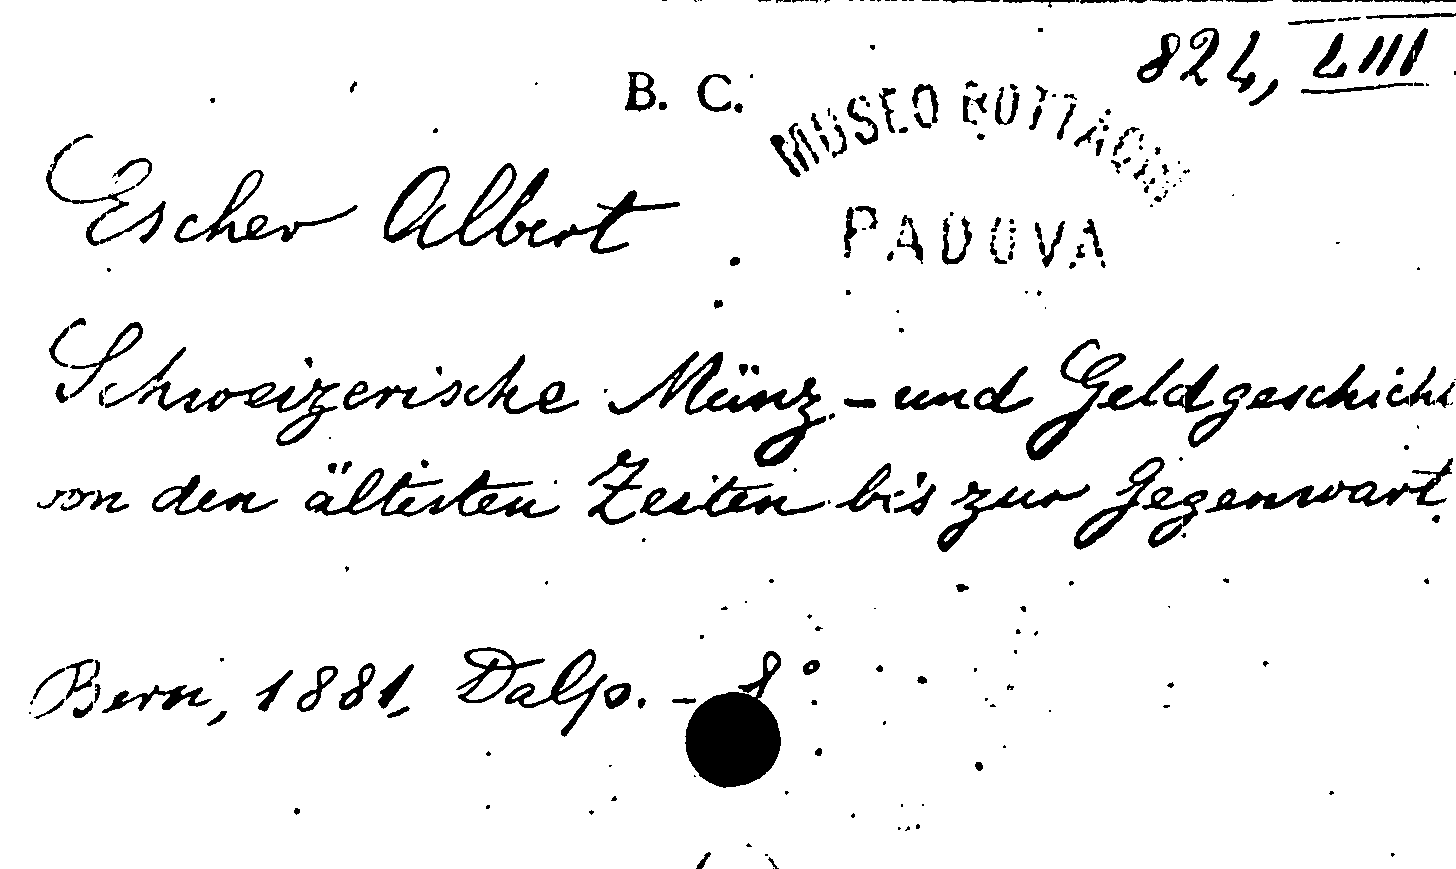 824, LIII
B. C.
MUSEO BOTTACIN
PADOVA
Escher Albert
Schweizerische Münz - und Geldgeschicht
von den ältesten Zeiten bis zur Gegenwart.
Bern, 1881, Dalp. - 8°